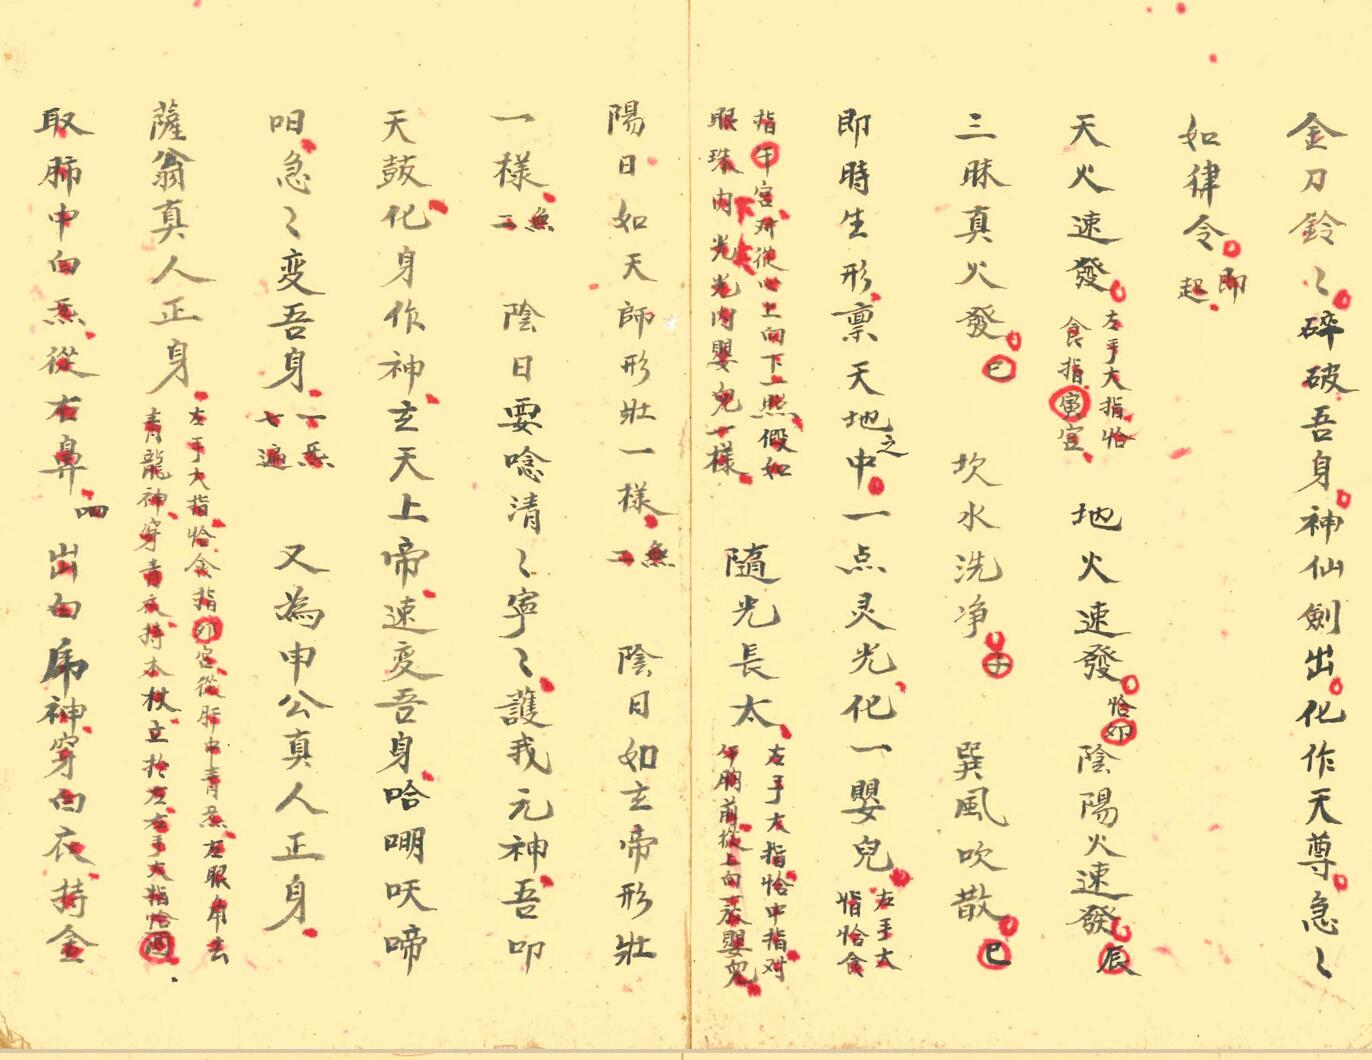 金刀鈴〻碎破吾身神仙劍出化作天尊急〻
如律令 即起
天火速發 左手大指恰食指寅宮 地火速發 恰卯 陰陽火速發 辰
三昧真火發 巳 坎水洗净 子 巽風吹散 巳
即時生形禀天地之中一点灵光化一嬰兒 左手大指恰食
指午宮对從心上向下一照假如眼珠内光光内嬰兒一樣 隨光長太 左手大指恰中指对午胸前從上向一放嬰兒
陽日如天師形壯一樣 一炁 陰日如玄帝形壯
一樣 一炁 陰日要唸清〻寧〻護我元神吾叩
天鼓化身作神玄天上帝速变吾身哈嘲吠啼
呾急〻变吾身 一炁七遍 又為申公真人正身
薩翁真人正身 左手大指恰食指卯宮從肝中青炁左眼角去青龍神穿青衣持木杖立於左左手大指恰酉
取肺中白炁從右鼻呬出白虎神穿白衣持金